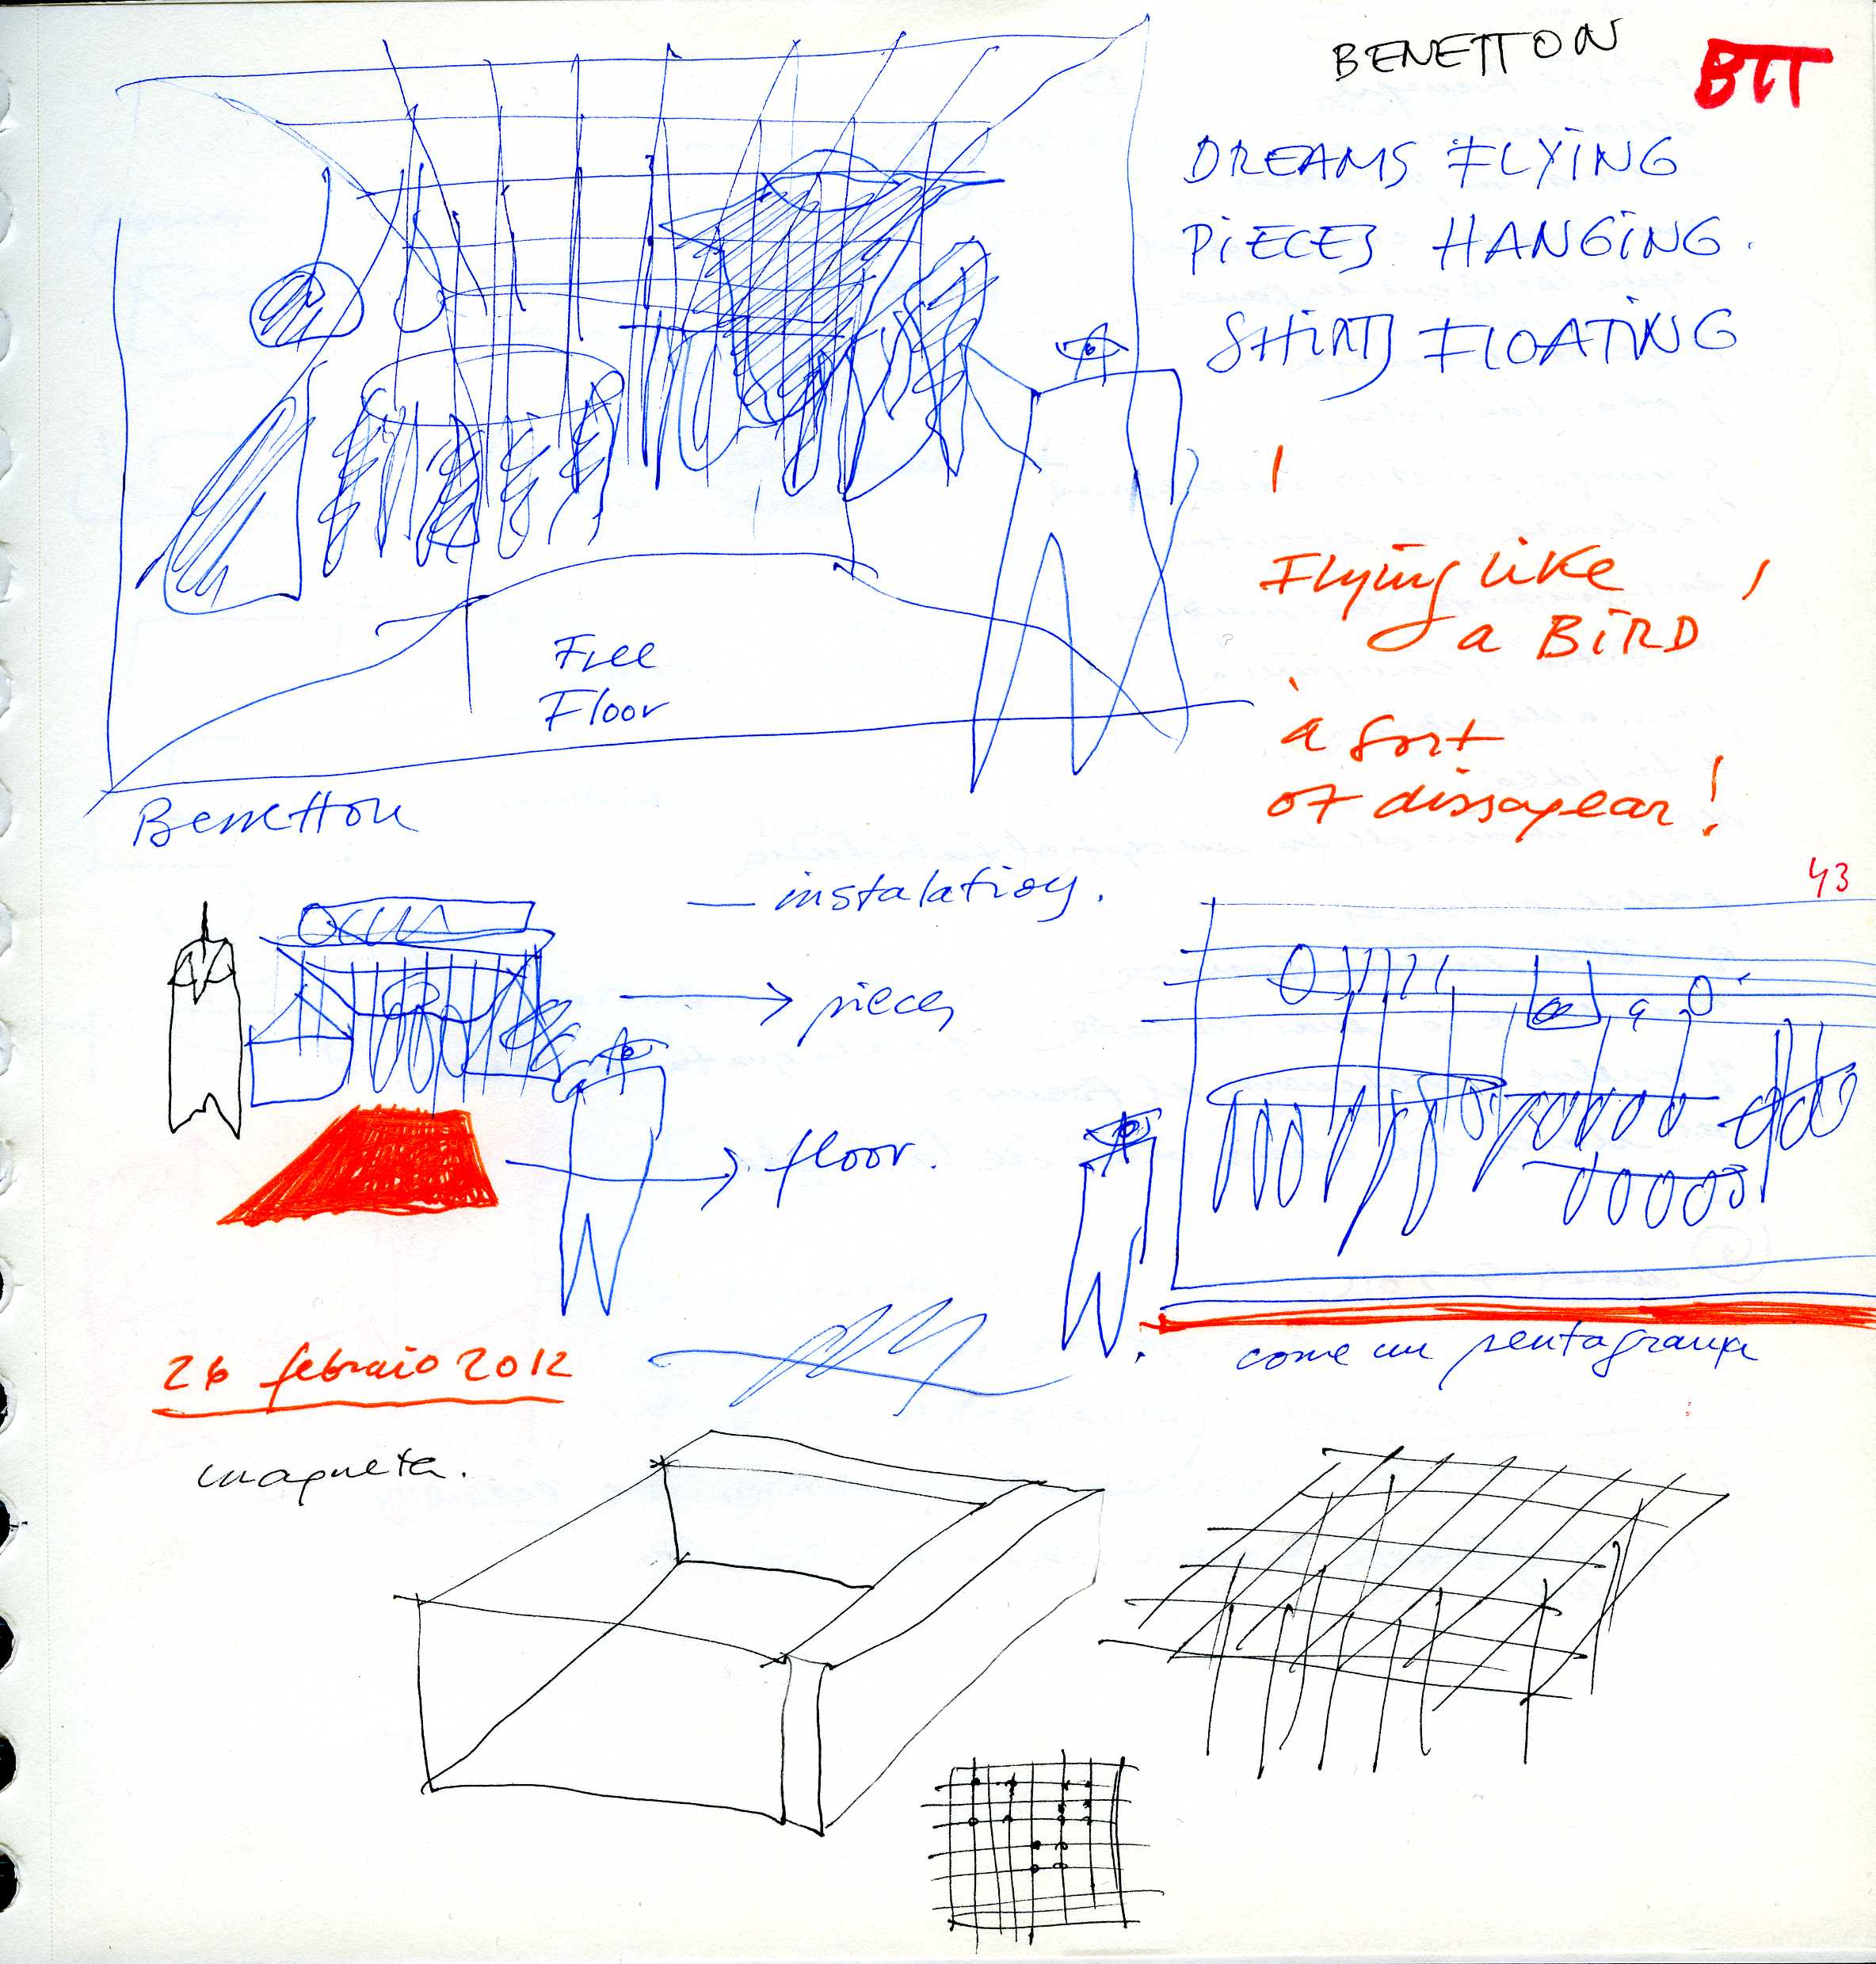 BENETTON
BTT
DREAMS FLYING
PIECES HANGING.
SHIRTS FLOATING
!
Flying like
a BIRD
a sort
of dissapear!
Free
Floor
Benetton
— instalation.
pieces
floor.
43
come un pentagrama
26 febraio 2012
maqueta.